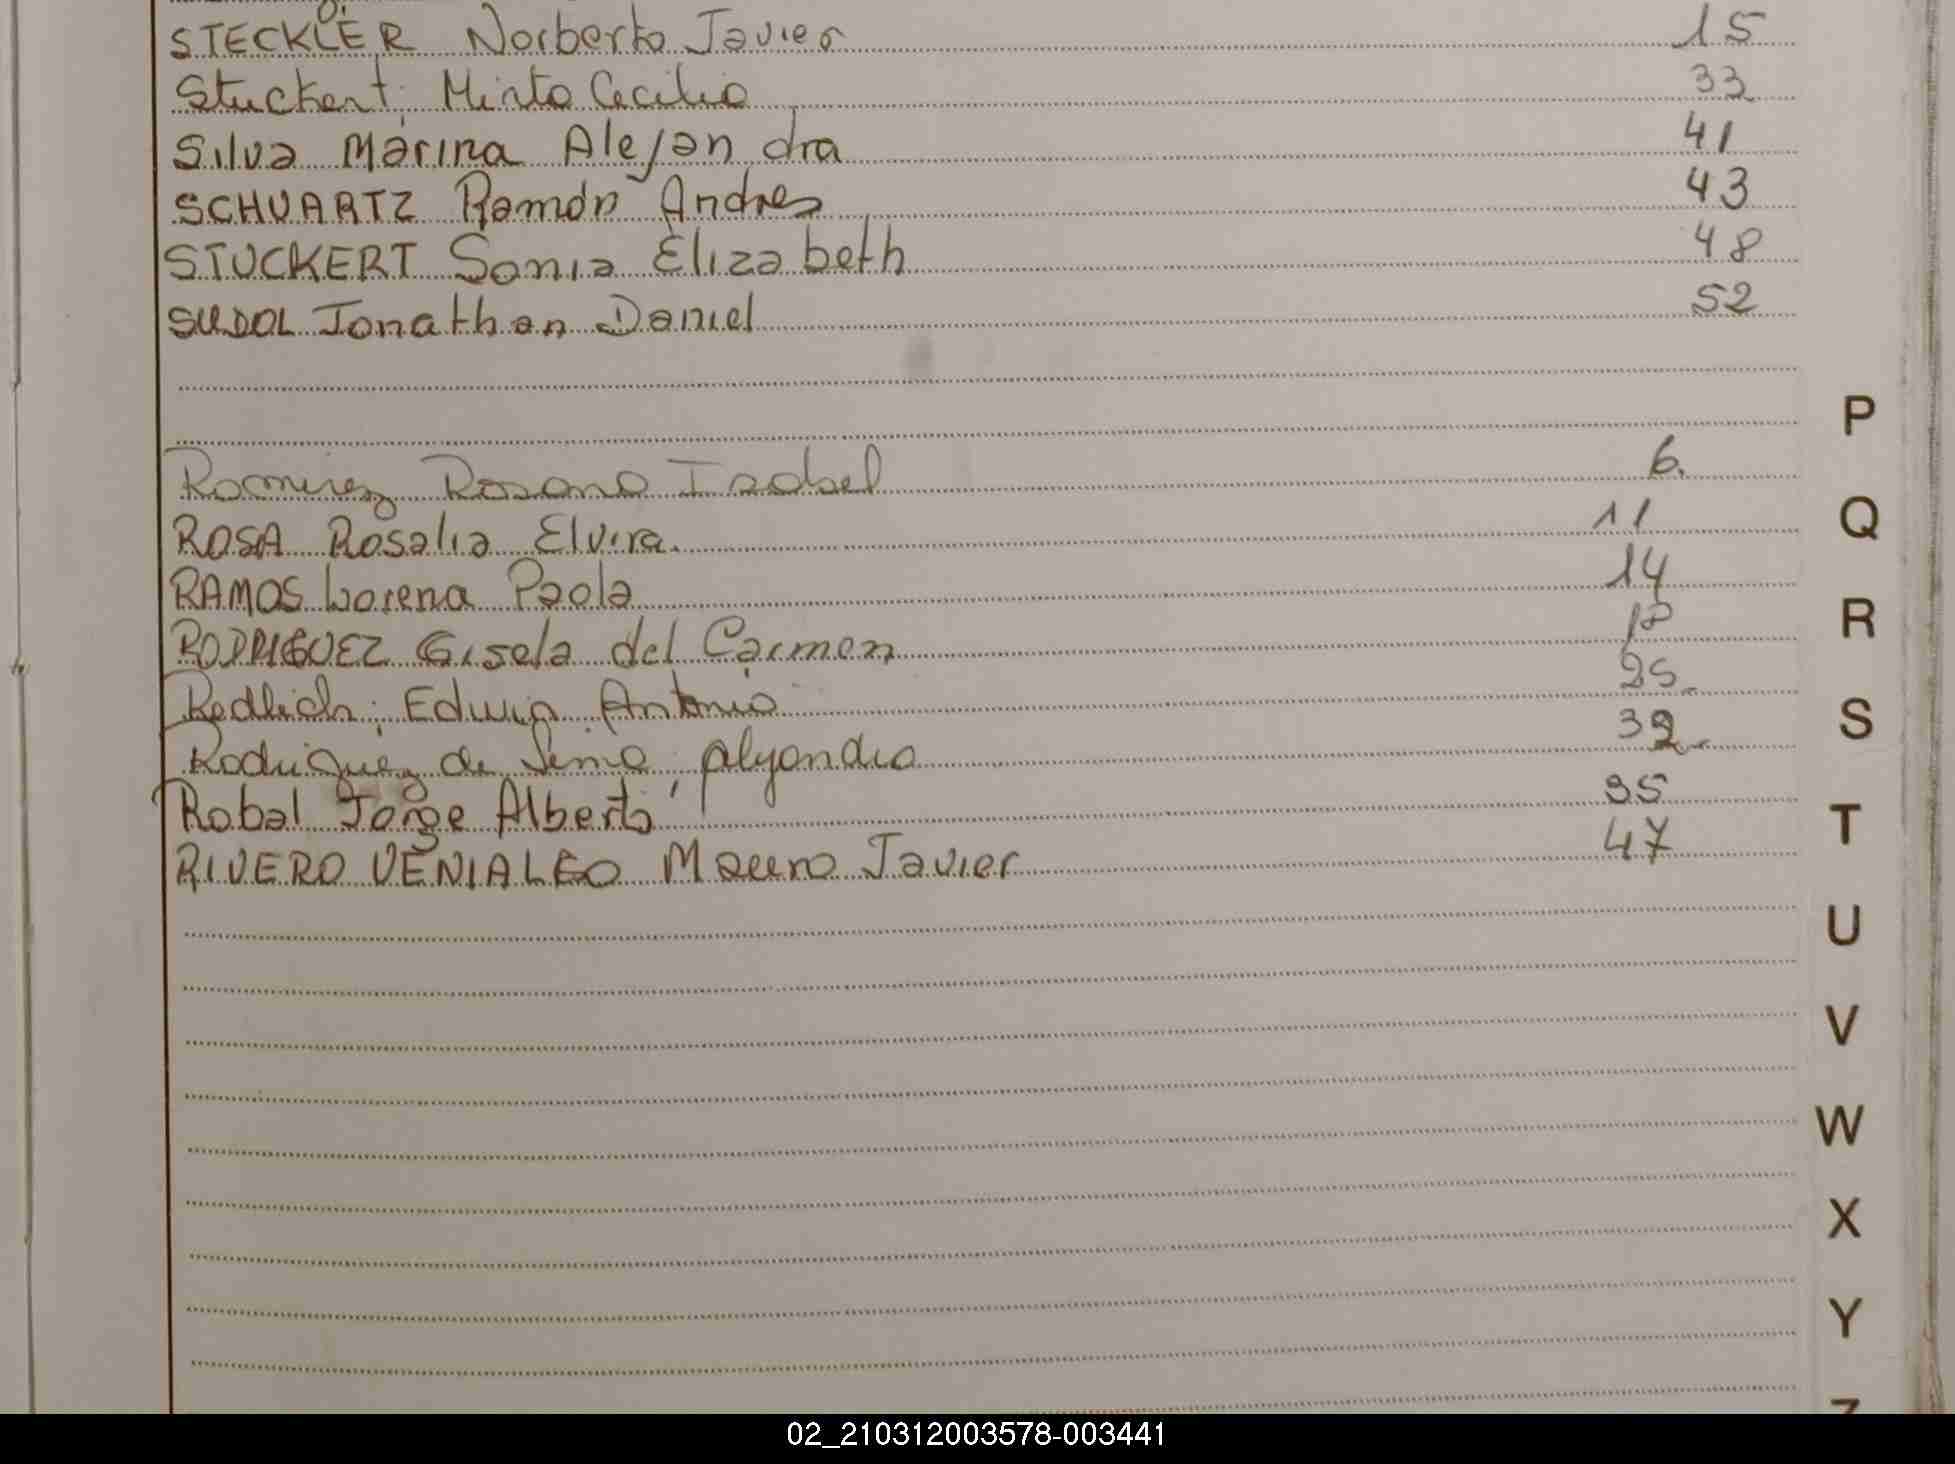 STECKLER Norberto Javier 15
Stuckert, Mirta Cecilia 33
Silva Marina Alejandra 41
SCHUARTZ Ramón Andres 43
STUCKERT Sonia Elizabeth 48
SUDOL Jonathan Daniel 52
P
Ramirez Rosana Isabel 6.
Q
ROSA Rosalia Elvira. 11
RAMOS Lorena Paola 14
R
RODRIGUEZ Gisela del Carmen
Redlich, Edwin Antonio 25
S
Rodriguez de Lima, Alejandra 32
Robal Jorge Alberto 35
T
RIVERO VENIALGO Mauro Javier 47
U
V
W
X
Y
Z
02_210312003578-003441